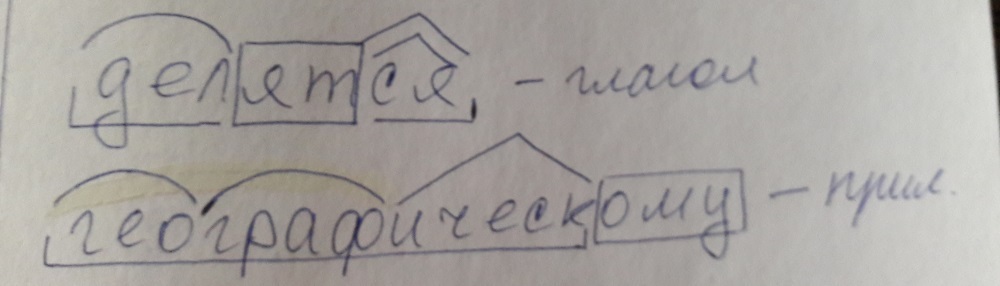 делятся - глагол
географическому - прил.